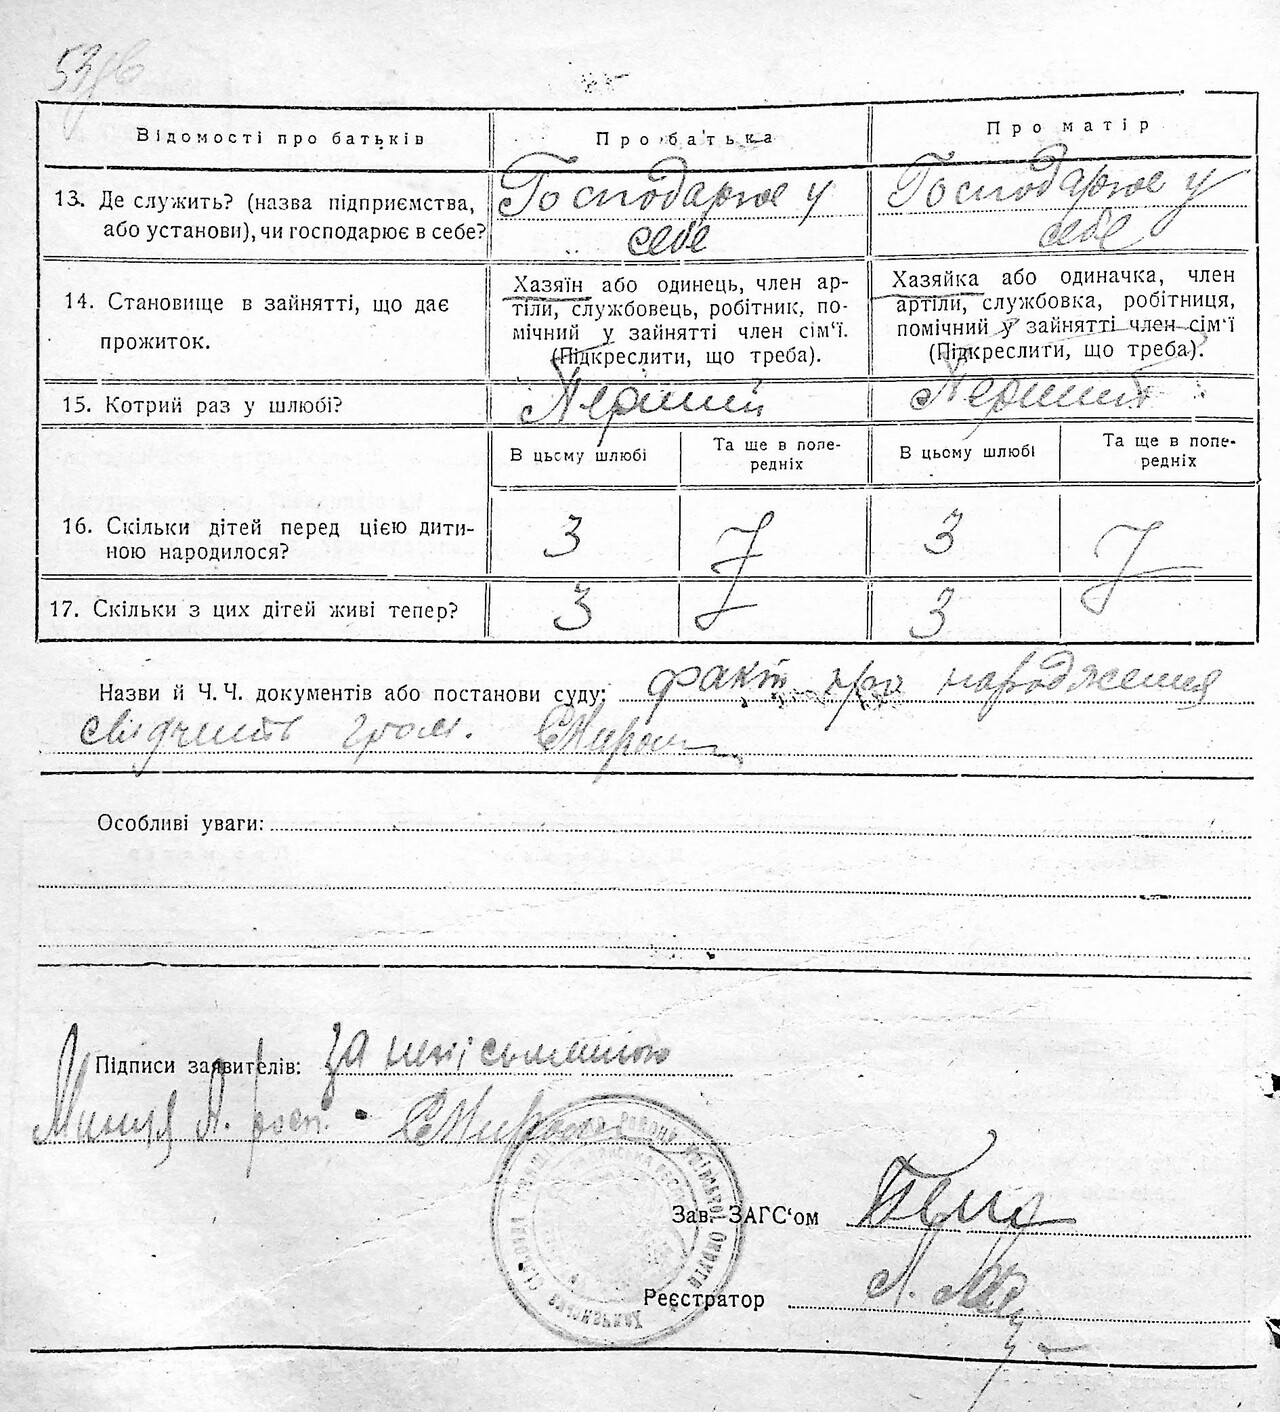 Відомості про батьків
Про батька
Про матір
13. Де служить? (назва підприємства,
або установи), чи господарює в себе?
Господарює у
себе
Господарює у
себе
14. Становище в зайнятті, що дає
прожиток.
Хазяїн або одинець, член ар-
тіли, службовець, робітник, по-
мічний у зайнятті член сім'ї.
(Підкреслити, що треба).
Хазяйка або одиначка, член
артіли, службовка, робітниця,
помічний у зайнятті член сім'ї
(Підкреслити, що треба).
15. Котрий раз у шлюбі?
Перший
Перший
В цьому шлюбі
Та ще в попе-
редніх
В цьому шлюбі
Та ще в попе-
редніх
16. Скільки дітей перед цією дити-
ною народилося?
3
3
17. Скільки з цих дітей живі тепер?
3
3
Назви й Ч. Ч. документів або постанови суду: факт про народження
свідчить гром.
Особливі уваги:
Підписи заявителів: за неписьменною
розп.
Зав. ЗАГС'ом
Реєстратор